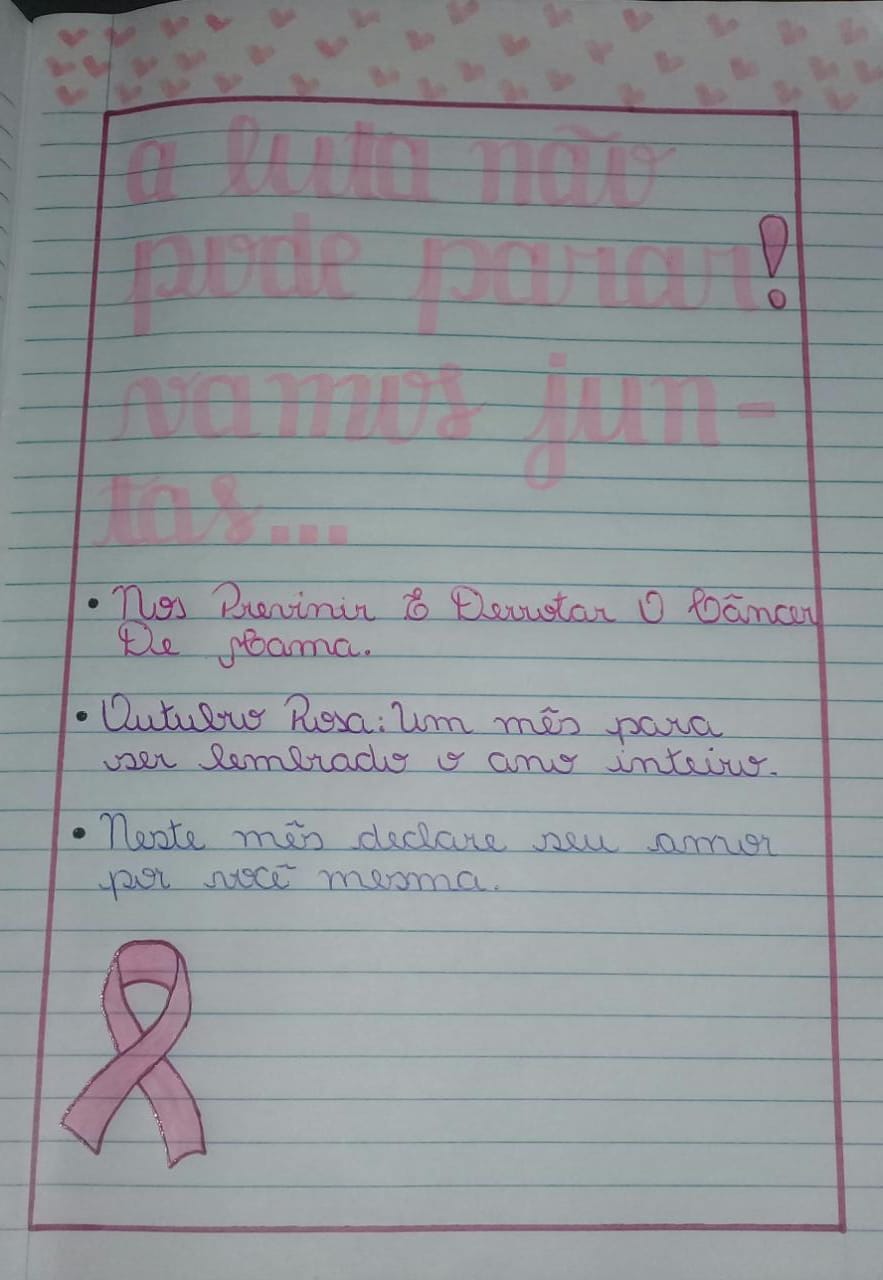 a luta não
pode parar!
vamos jun-
tas...
• Nos Previnir E Derrotar O Câncer
De Mama.
• Outubro Rosa: Um mês para
ser lembrado o ano inteiro.
• Neste mês declare seu amor
por você mesma.